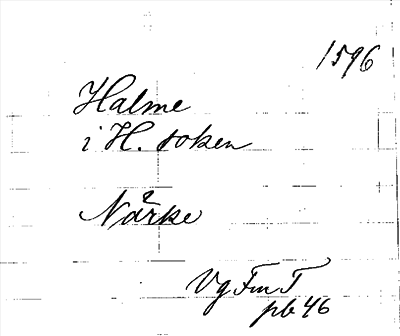 1596
Halme
i H. soken
Närke
Vg FmT
pb 46